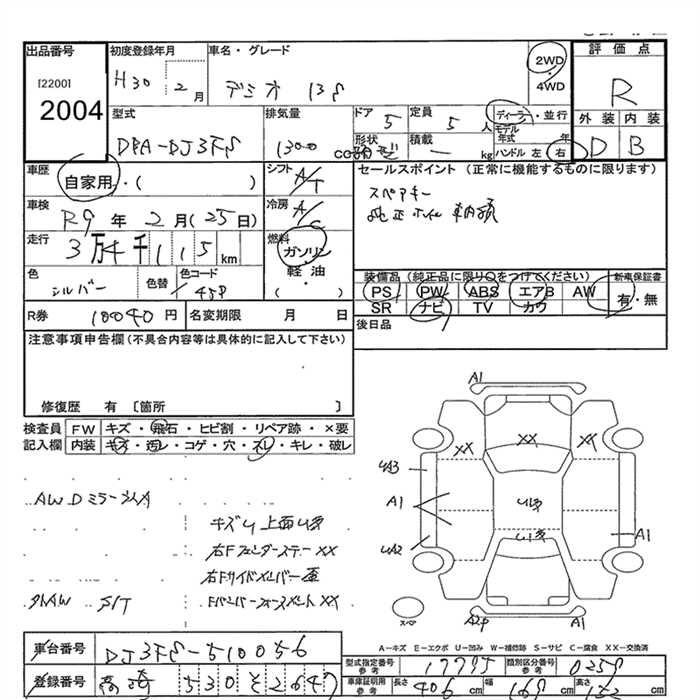 出品番号
[2200]
2004
初度登録年月
H30 2月
車名・グレード
デミオ 13S
2WD
・
4WD
評価点
R
外装 内装
D B
型式
DBA-DJ3FS
排気量
1300 cc
ドア
5
形状
定員
5人
積載
— kg
ディーラ・並行
モデル年式 年
ハンドル 左 右
車歴
自家用・( )
シフト
A/T
車検
R9年 2月(25日)
冷房
A/C
走行
3万4千115km
燃料
ガソリン
・
軽油
・
( )
色
シルバー
色替
色コード
45P
R券 10040円
名変期限 月 日
セールスポイント (正常に機能するものに限ります)
スペアキー
装備品(純正品に限り○をつけてください) 新車保証書
PS PW ABS エアB AW
SR ナビ TV カワ
有・無
後日品
注意事項申告欄(不具合内容等は具体的に記入して下さい)
修復歴 有 [箇所 ]
検査員 FW キズ・飛石・ヒビ割・リペア跡・×要
記入欄 内装 キズ・汚レ・コゲ・穴・スレ・キレ・破レ
A1
XX XX XX
UA3
A1
UA2
A1
A1
スペア
AW Dミラー
キズ
右Fフェンダーステー XX
右Fサイドメンバー
Fバンパーフォースメント XX
外AW S/T
A-キズ E-エクボ U-凹み W-補修跡 S-サビ C-腐食 XX-交換済
車台番号 DJ3FS-510056
型式指定番号 参考
類別区分番号 参考 0258
登録番号 530 そ 2647
車庫証明用 参考 長さ 406cm 幅 169cm 高さ cm